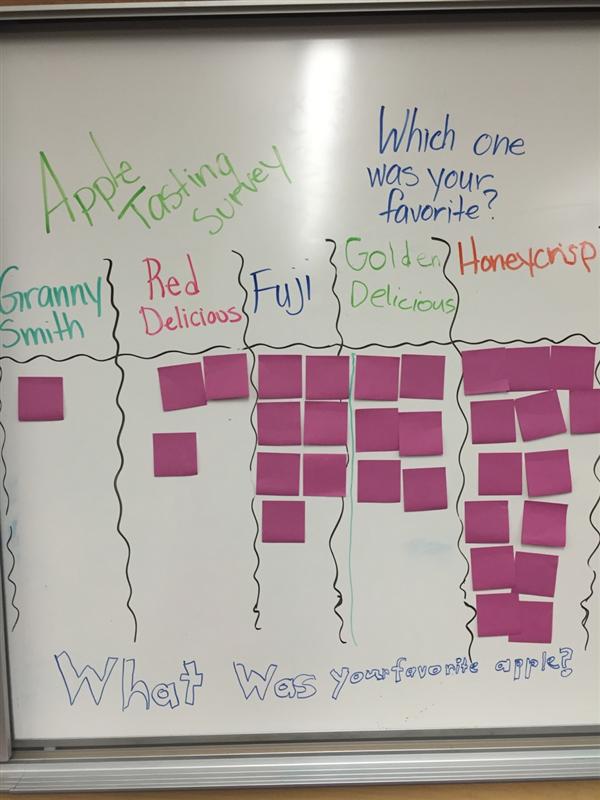 Apple
Tasting
Survey
Which one
was your
favorite?
Granny
Smith
Red
Delicious
Fuji
Golden
Delicious
Honeycrisp
What Was your favorite apple?